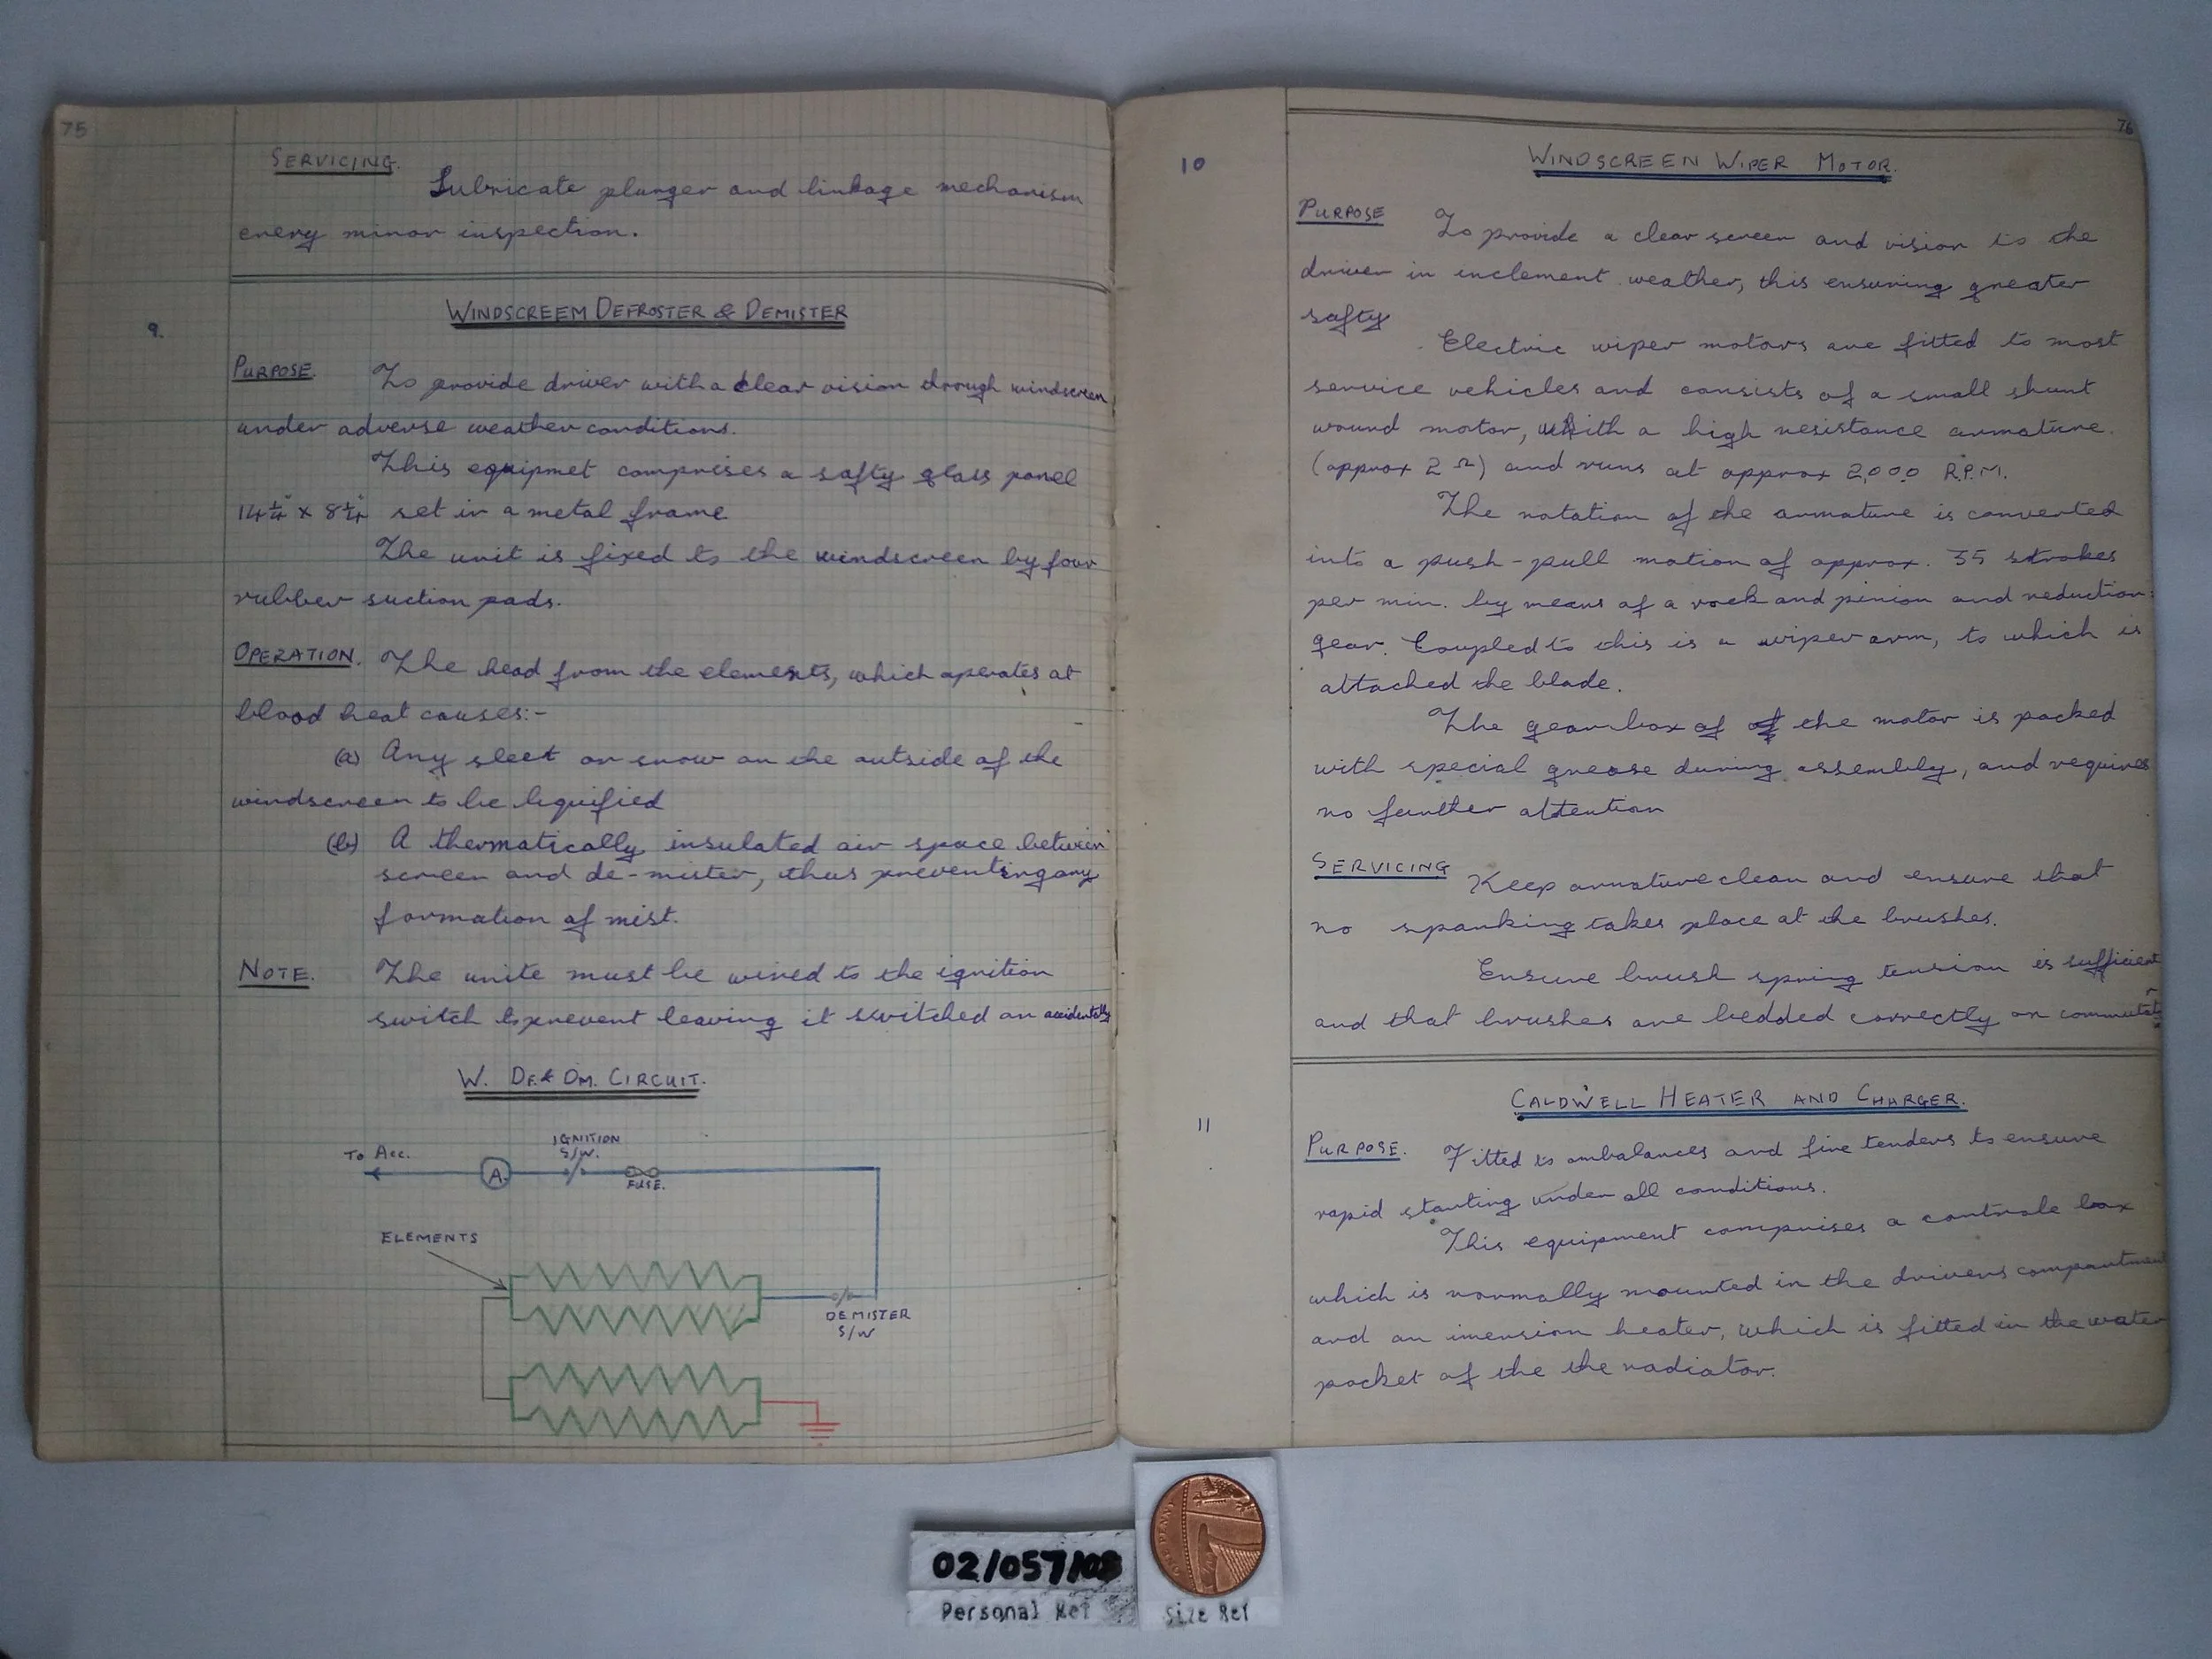 75
SERVICING.
Lubricate plunger and linkage mechanism
every minor inspection.
9.
WINDSCREEM DEFROSTER & DEMISTER
PURPOSE. To provide driver with a clear vision through windscreen
under adverse weather conditions.
This equipmet comprises a safty glass panel
14¼" x 8¼" set in a metal frame
The unit is fixed to the windscreen by four
rubber suction pads.
OPERATION. The head from the elements, which operates at
blood heat causes:-
(a) Any sleet or snow on the outside of the
windscreen to be liquified
(b) A thermatically insulated air space between
screen and de-mister, thus preventing any
formation of mist.
NOTE. The unite must be wired to the ignition
switch to prevent leaving it switched on accidentally
W. DF. & DM. CIRCUIT.
To Acc.
A
IGNITION
S/W.
FUSE.
ELEMENTS
DEMISTER
S/W
76
10
WINDSCREEN WIPER MOTOR.
PURPOSE To provide a clear screen and vision to the
driver in inclement weather, this ensuring greater
safty
Electric wiper motors are fitted to most
service vehicles and consists of a small shunt
wound motor, with a high resistance armature.
(approx 2 Ω) and runs at approx 2,000 R.P.M.
The rotation of the armature is converted
into a push-pull motion of approx. 35 strokes
per min. by means of a rack and pinion and reduction
gear. Coupled to this is a wiper arm, to which is
attached the blade.
The gearbox of the motor is packed
with special grease during assembly, and requires
no further attention
SERVICING Keep armature clean and ensure that
no sparking takes place at the brushes.
Ensure brush spring tension is sufficient
and that brushes are bedded correctly on
11
CALDWELL HEATER AND CHARGER.
PURPOSE. Fitted to ambalances and fire tenders to ensure
rapid starting under all conditions.
This equipment comprises a controle box
which is normally mounted in the drivers compartment
and an imersion heater, which is fitted in the water
pocket of the the radiator.
02/057/08
Personal Ref
Size Ref
ONE PENNY